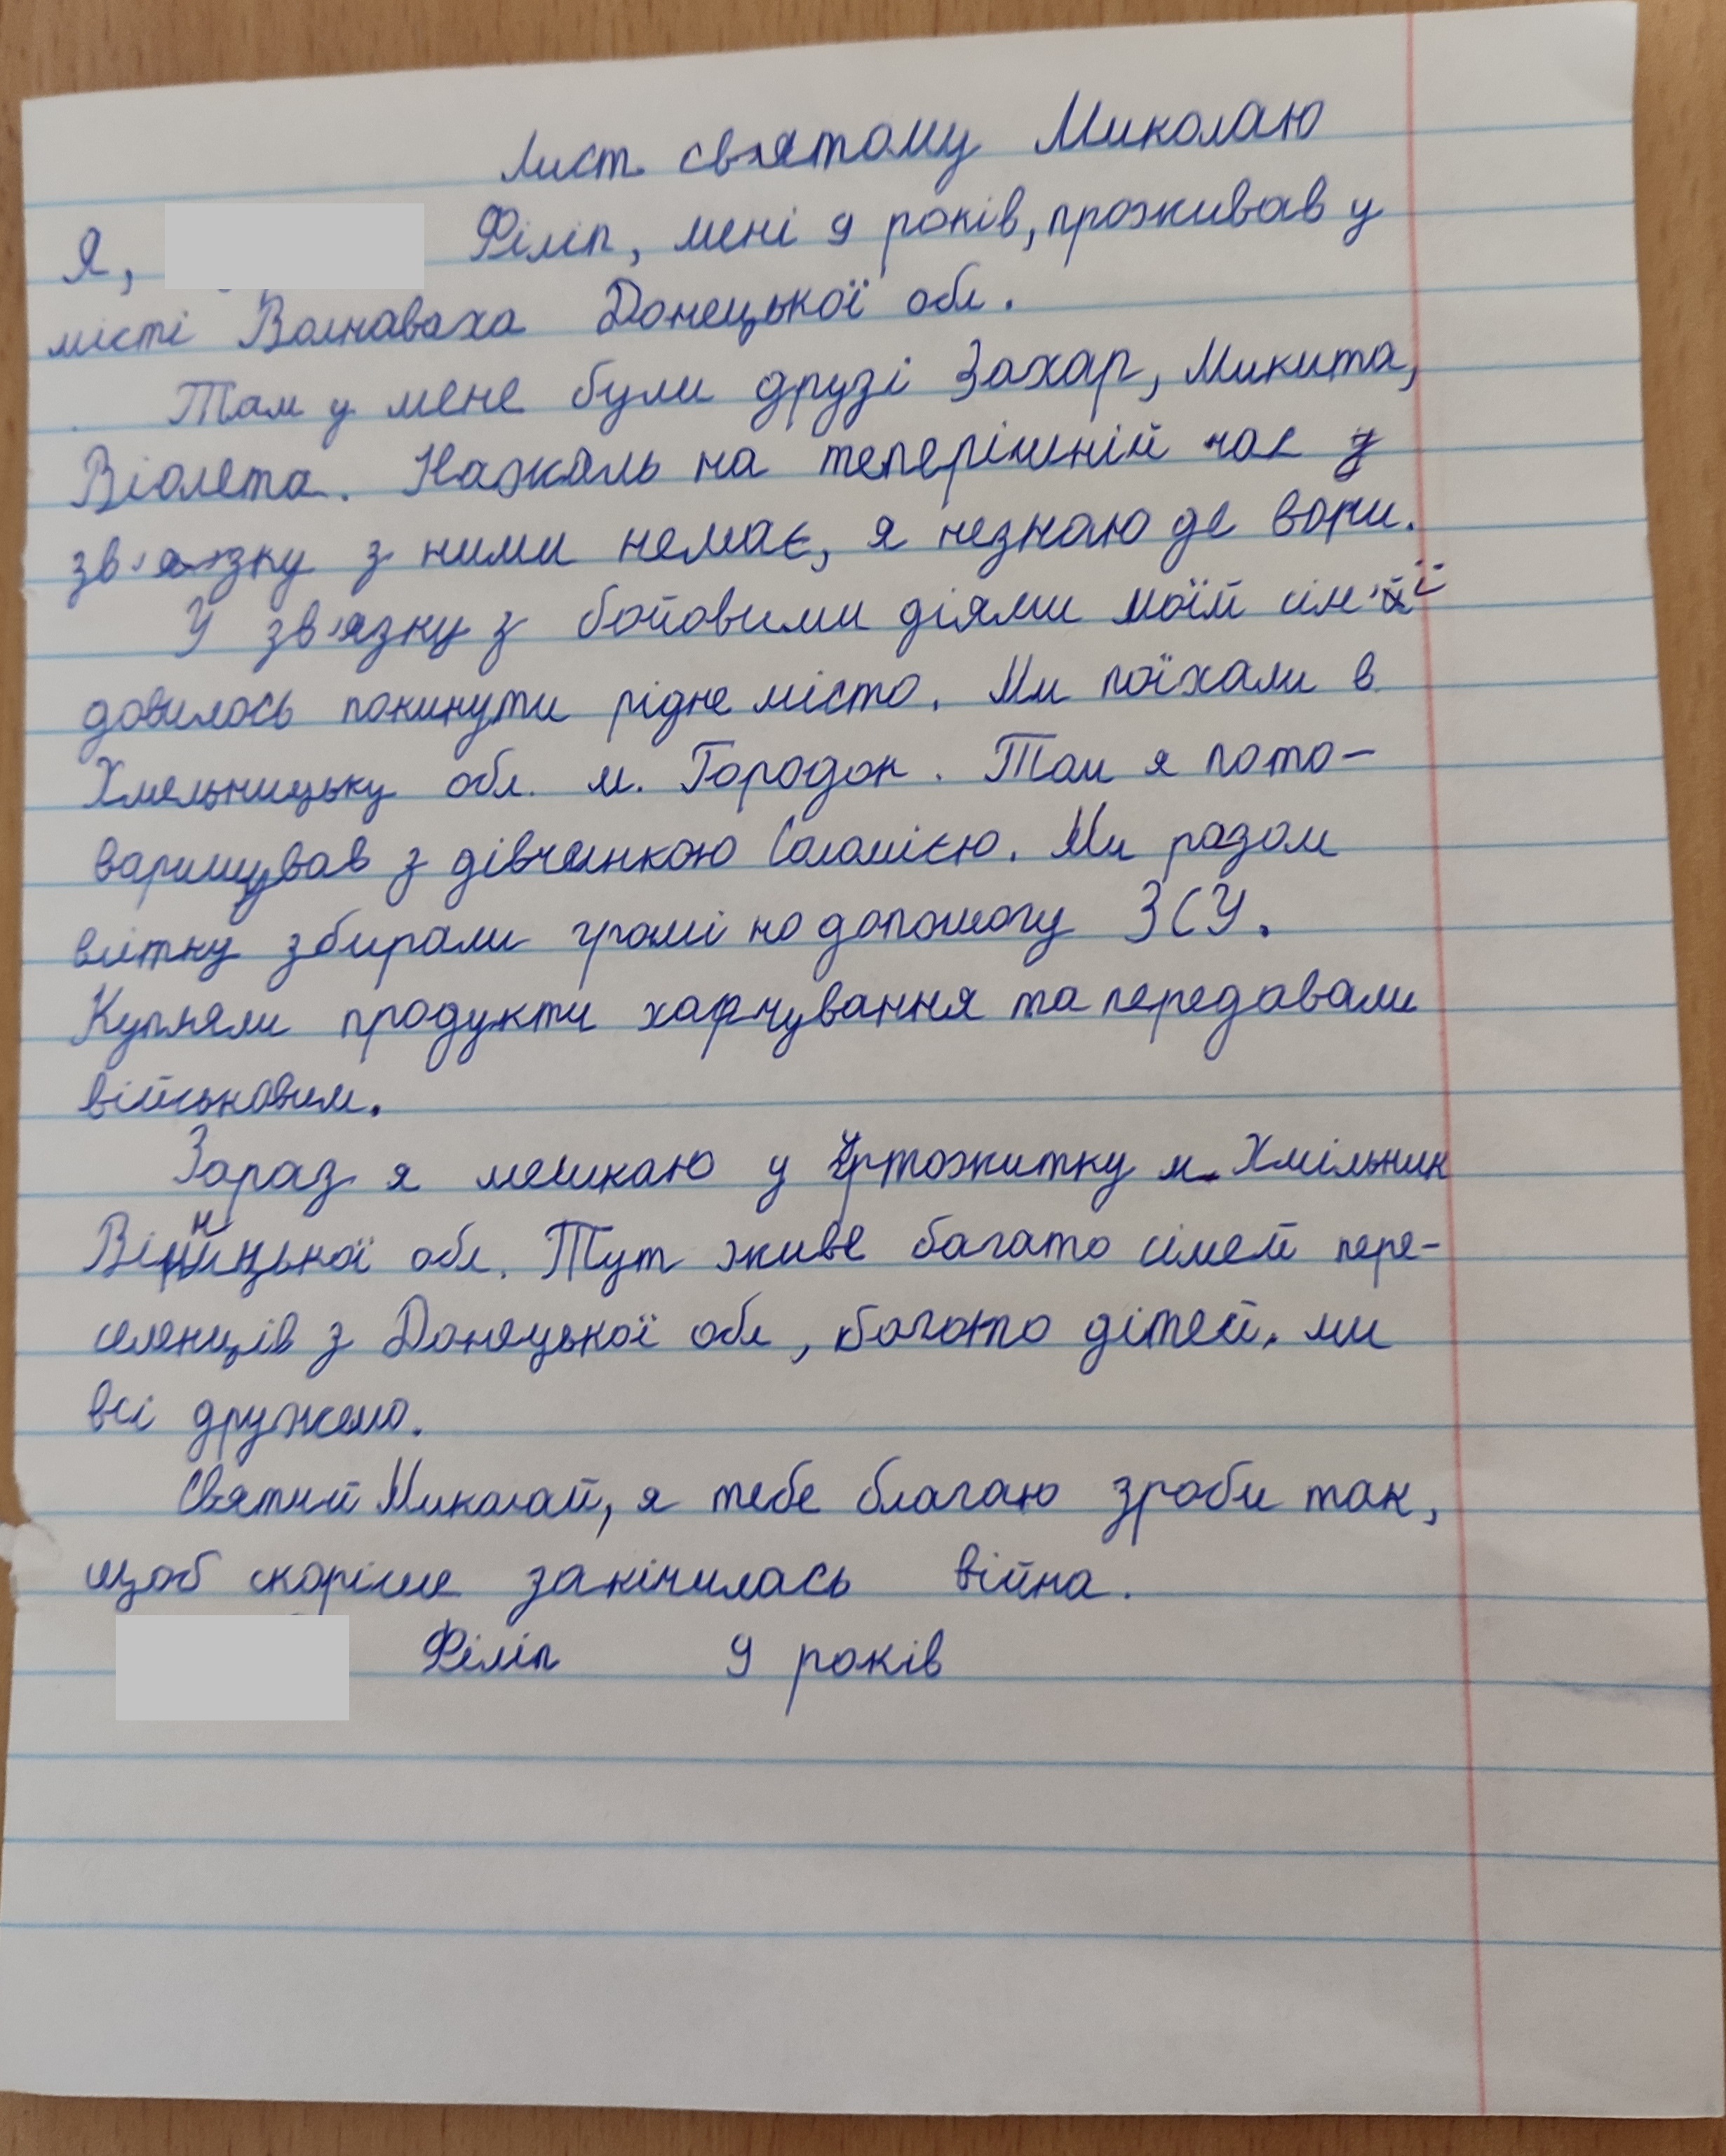 Лист св'ятому Миколаю
Я, Філіп, мені 9 років, проживав у
місті Волноваха Донецької обл.
Там у мене були друзі Захар, Микита,
Віолета. Нажаль на теперішній час
зв'язку з ними немає, я незнаю де вони.
У зв'язку з бойовими діями моїй сім'ї
довилось покинути рідне місто. Ми поїхали в
Хмельницьку обл. м. Городок. Там я пото-
варишував з дівчинкою Соломією. Ми разом
влітку збирали гроші на допомогу ЗСУ.
Купляли продукти харчування та передавали
військовим.
Зараз я мешкаю у гуртожитку м. Хмільник
Вінницької обл. Тут живе багато сімей пере-
селенців з Донецької обл, багато дітей. ми
всі дружемо.
Святий Миколай, я тебе благаю зроби так,
щоб скоріше закінчилась війна.
Філіп 9 років